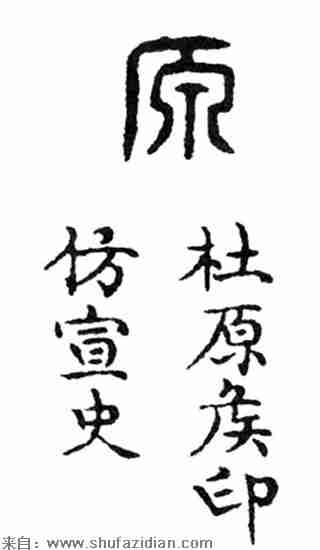 原
杜原矦印
仿宣史
来自：www.shufazidian.com